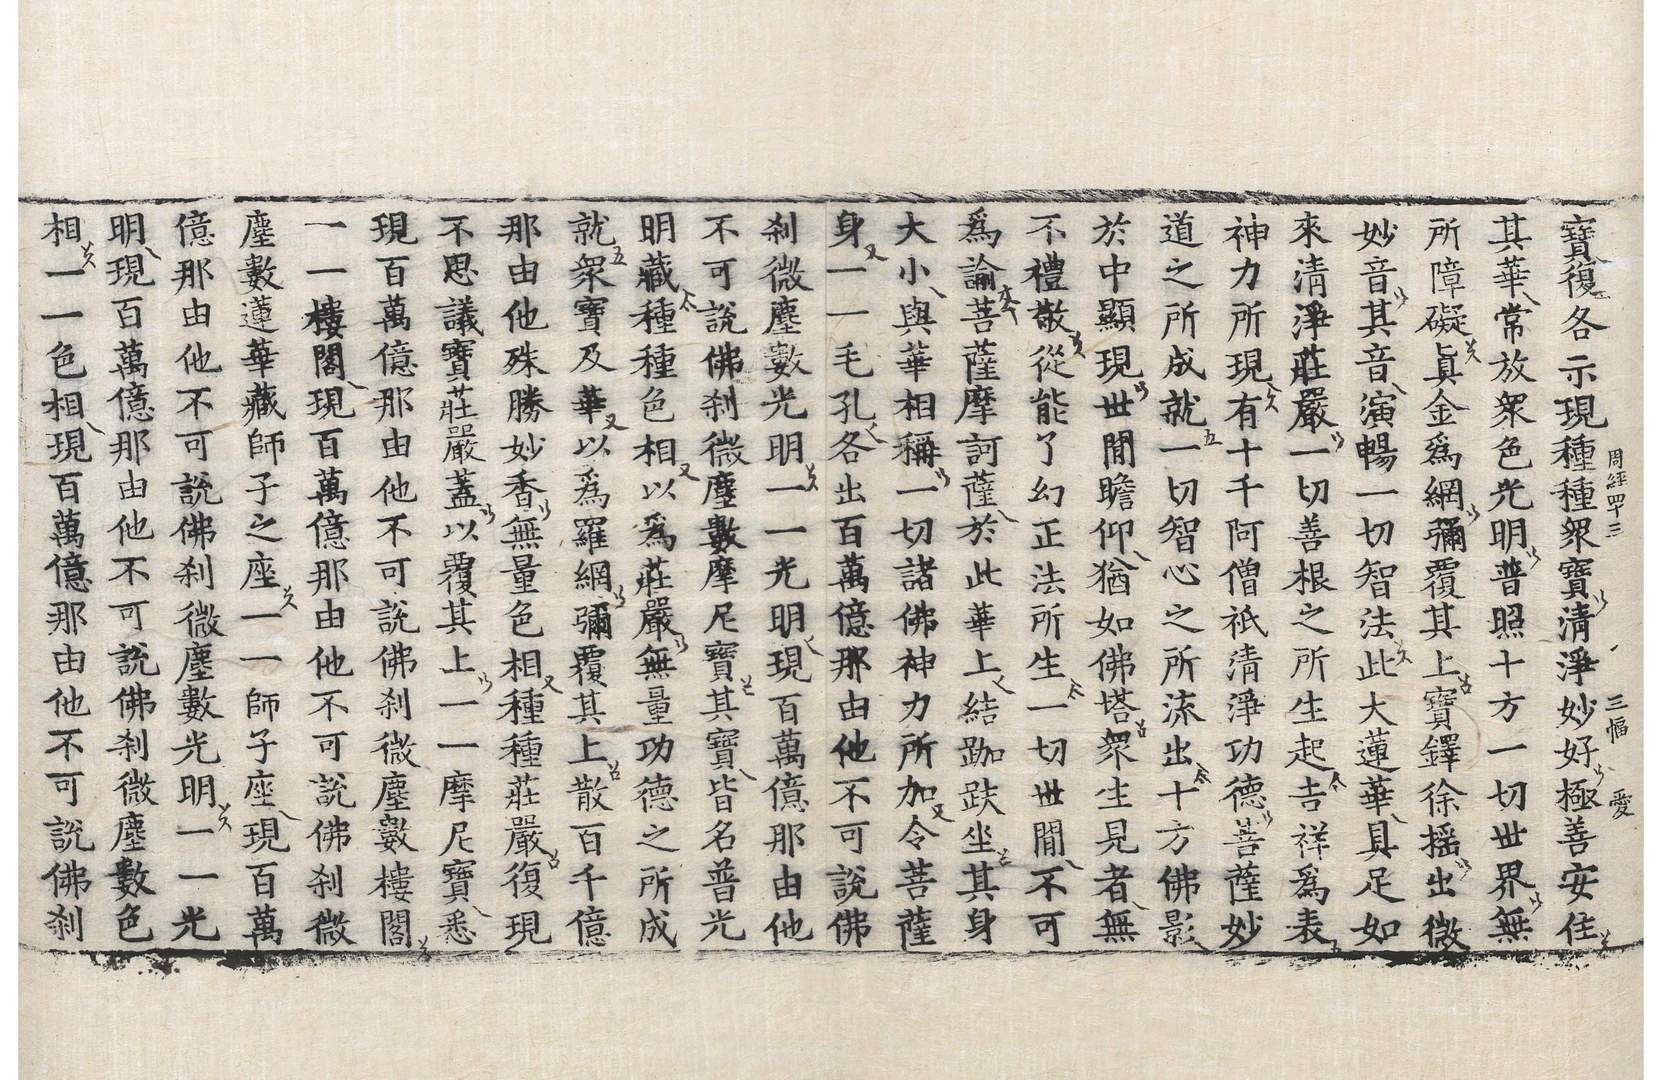 周經四十三 三幅 愛
寶復各示現種種眾寶清淨妙好極善安住
其華常放眾色光明普照十方一切世界無
所障礙眞金爲網彌覆其上寶鐸徐搖出微
妙音其音演暢一切智法此大蓮華具足如
來清淨莊嚴一切善根之所生起吉祥爲表
神力所現有十千阿僧祇清淨功德菩薩妙
道之所成就一切智心之所流出十方佛影
於中顯現世間瞻仰猶如佛塔眾生見者無
不禮敬從能了幻正法所生一切世間不可
爲諭菩薩摩訶薩於此華上結跏趺坐其身
大小與華相稱一切諸佛神力所加令菩薩
身一一毛孔各出百萬億那由他不可說佛
剎微塵數光明一一光明現百萬億那由他
不可說佛剎微塵數摩尼寶其寶皆名普光
明藏種種色相以爲莊嚴無量功德之所成
就眾寶及華以爲羅網彌覆其上散百千億
那由他殊勝妙香無量色相種種莊嚴復現
不思議寶莊嚴蓋以覆其上一一摩尼寶悉
現百萬億那由他不可說佛剎微塵數樓閣
一一樓閣現百萬億那由他不可說佛剎微
塵數蓮華藏師子之座一一師子座現百萬
億那由他不可說佛剎微塵數光明一一光
明現百萬億那由他不可說佛剎微塵數色
相一一色相現百萬億那由他不可說佛剎